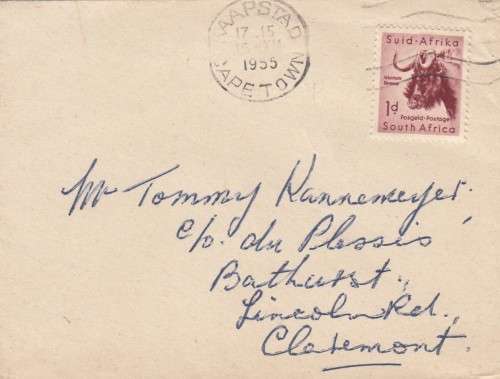 KAAPSTAD
17-15
1955
CAPE TOWN
Suid-Afrika
1d
Posgeld·Postage
South Africa
Mr Tommy Kannemeyer.
c/o. du Plessis
Bathurst.,
Lincoln Rd.,
Claremont.